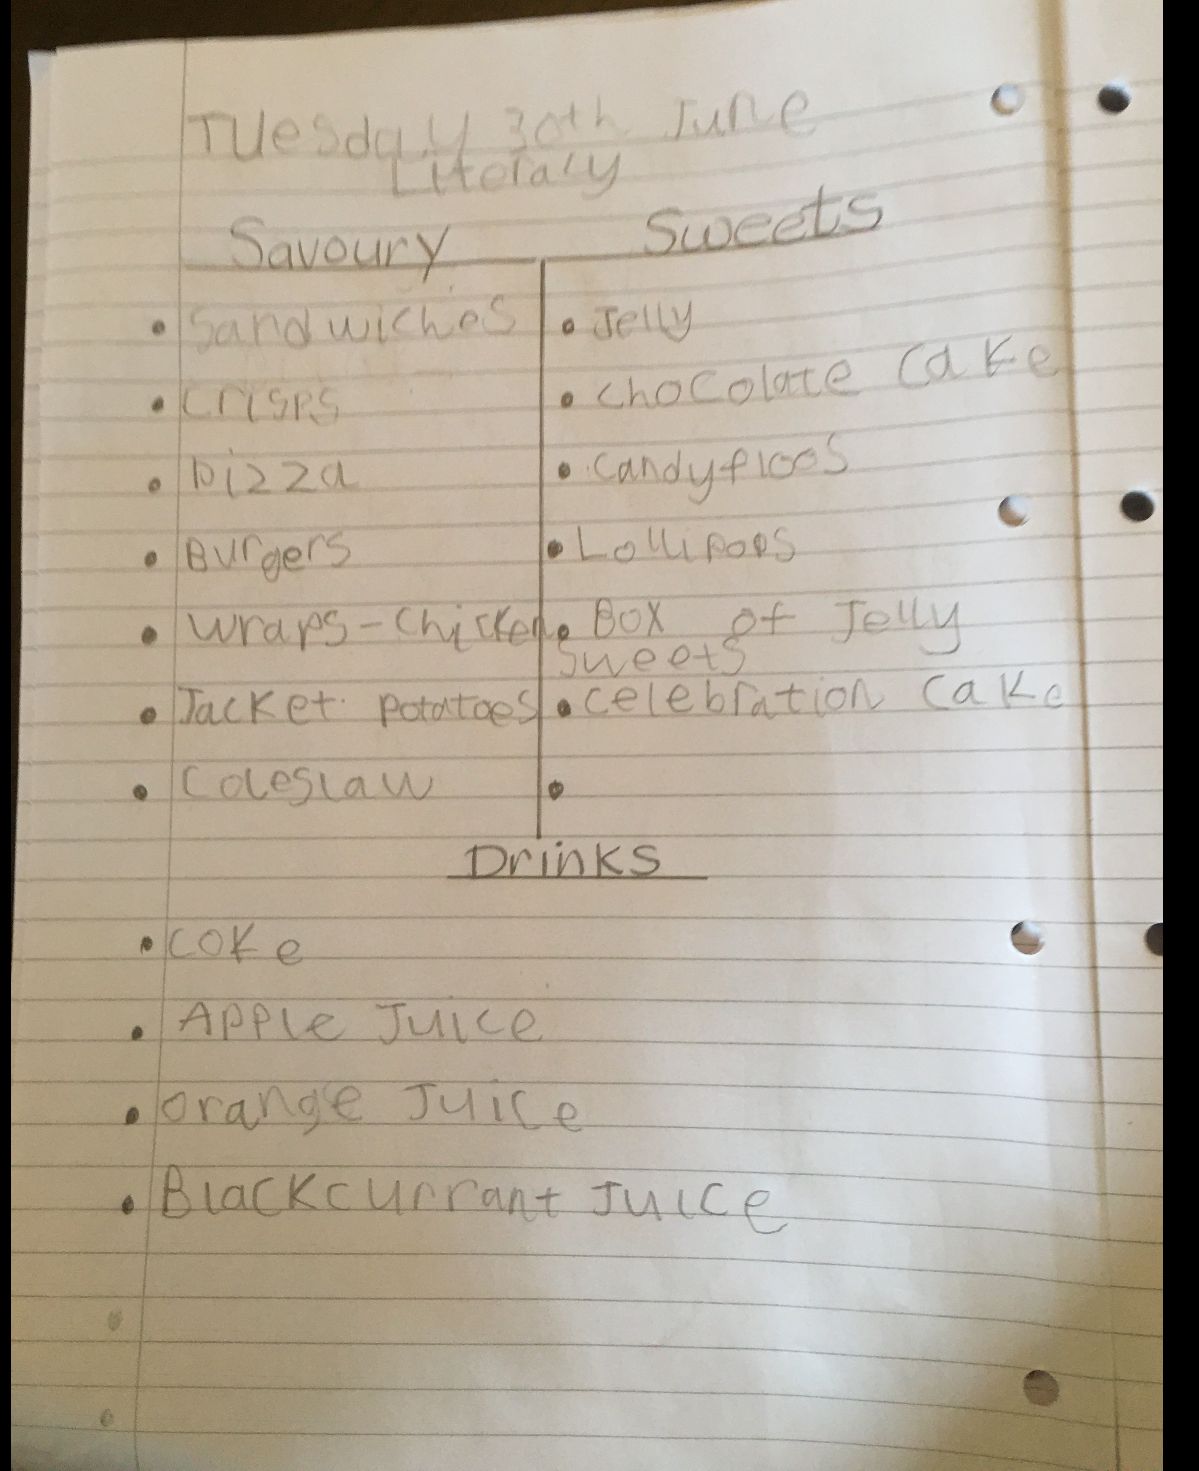 Tuesday 30th June
Literacy
Savoury
Sweets
• Sandwiches
• Crisps
• Pizza
• Burgers
• Wraps - Chicken
• Jacket potatoes
• Coleslaw
• Jelly
• Chocolate Cake
• Candyfloos
• Lollipops
• Box of Jelly
Sweets
• Celebration Cake
•
Drinks
• Coke
• Apple Juice
• Orange Juice
• Blackcurrant Juice